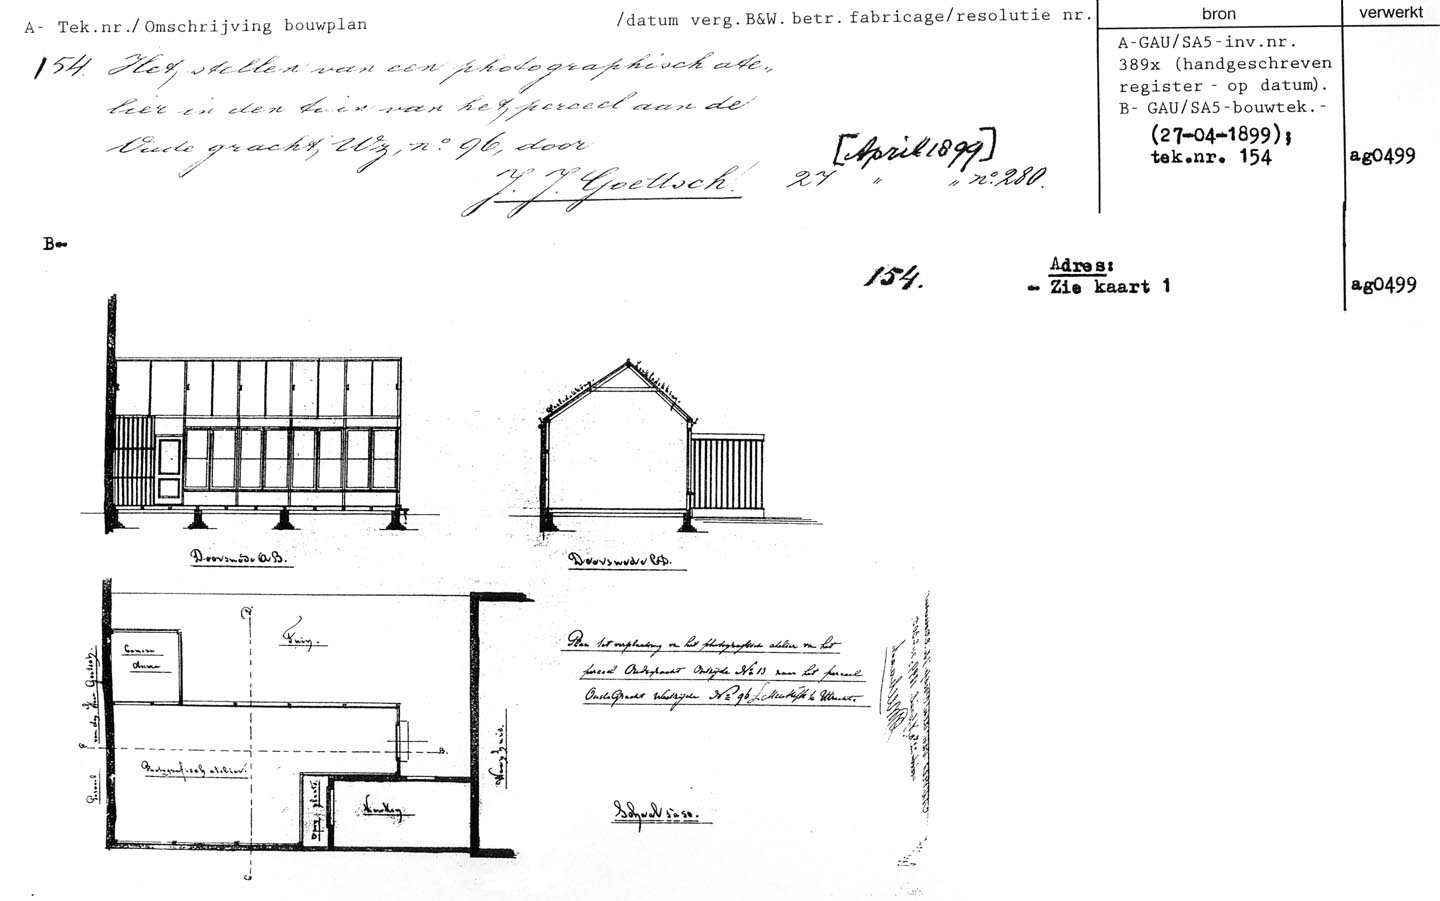 A- Tek.nr./Omschrijving bouwplan
/datum verg.B&W. betr. fabricage/resolutie nr.
bron
verwerkt
154. Het stellen van een photographisch ate„
lier in den tuin van het perceel aan de
Oude gracht, Wz, n° 96, door
J. J. Goettsch.
[April 1899]
27 " " n° 280.
A-GAU/SA5-inv.nr.
389x (handgeschreven
register - op datum).
B- GAU/SA5-bouwtek.-
(27-04-1899);
tek.nr. 154
ag0499
B-
154.
Adres:
- Zie kaart 1
ag0499
Doorsnede A B.
Doorsnede C D.
Tuin.
Perceel
Photografisch atelier.
Keuken
Woonhuis.
D.
B.
C
Plan tot verplaatsing van het photografisch atelier van het
perceel Oudegracht Oostzijde No 13 naar het perceel
Oude Gracht Westzijde No 96 te Utrecht.
Schaal 1 à 50.